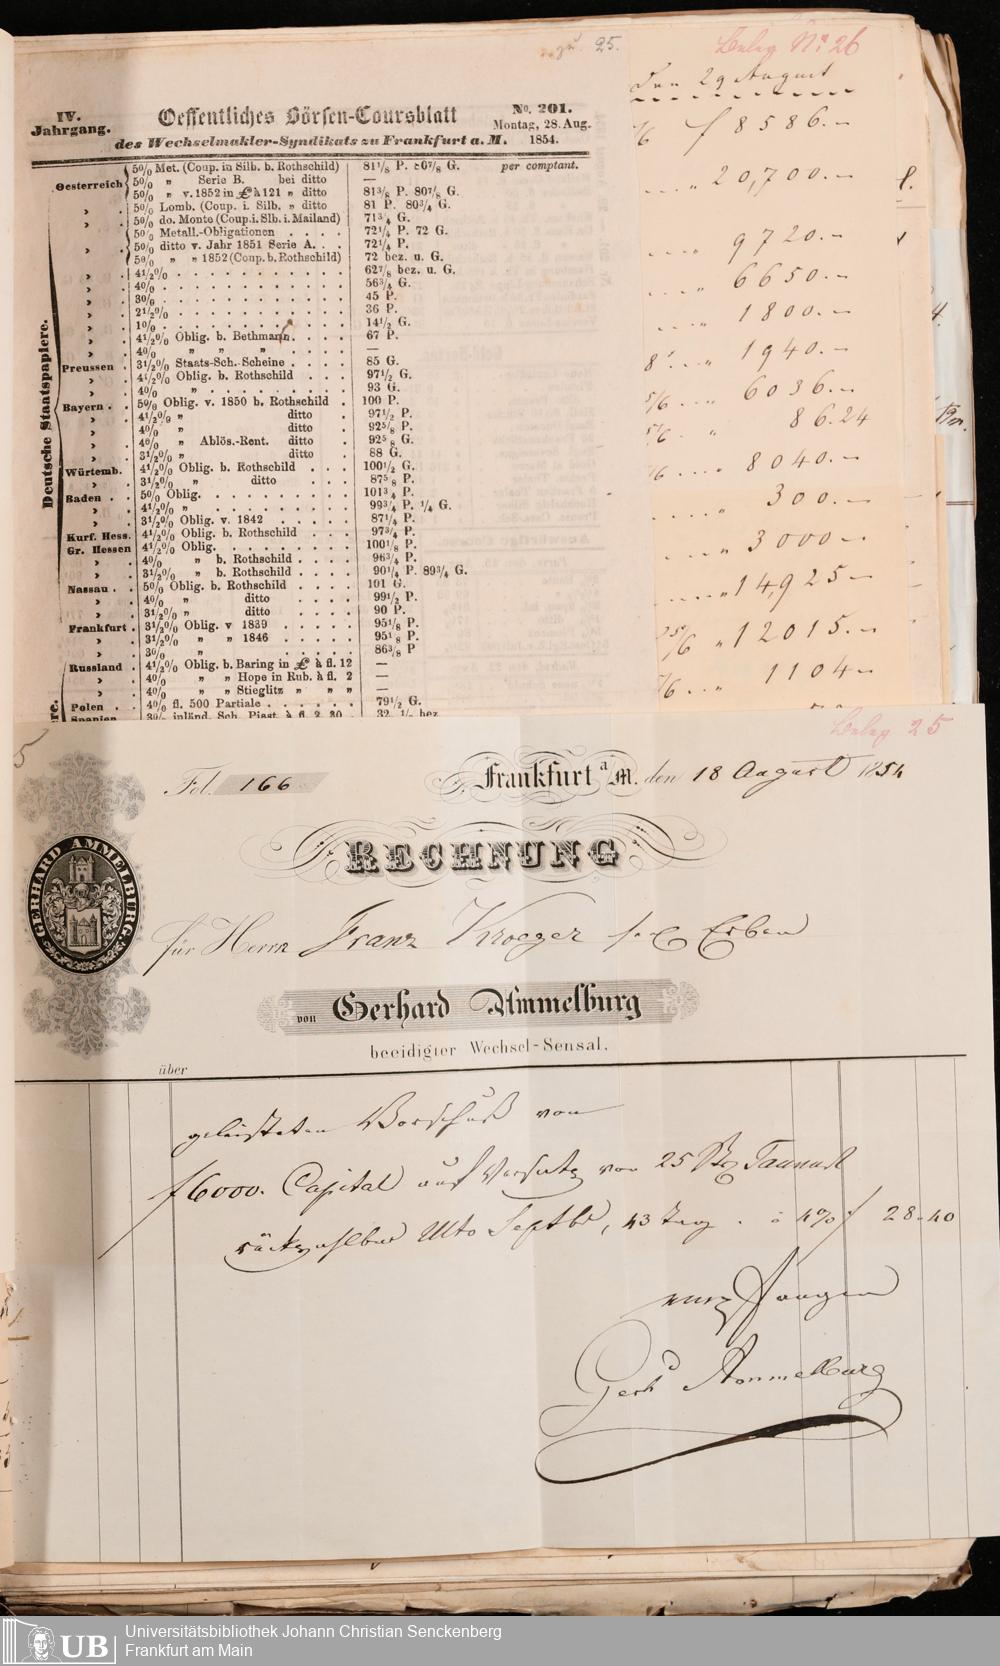 25.
IV.
Jahrgang.
Oeffentliches Börsen-Coursblatt
des Wechselmakler-Syndikats zu Frankfurt a. M.
No. 201.
Montag, 28. Aug.
1854.
per comptant.
Deutsche Staatspapiere.
Oesterreich 5% Met. (Coup. in Silb. b. Rothschild) 81⅛ P. 80⅞ G.
5% „ Serie B. bei ditto —
5% „ v. 1852 in £ à 121 „ ditto 81⅜ P. 80⅞ G.
» 5% Lomb. (Coup. i. Silb. „ ditto 81 P. 80¾ G.
5% do. Monte (Coup. i. Slb. i. Mailand) 71¾ G.
5% Metall.-Obligationen . . . . 72¼ P. 72 G.
» 5% ditto v. Jahr 1851 Serie A. . . 72¼ P.
5% „ „ 1852 (Coup. b. Rothschild) 72 bez. u. G.
» 4½% . . . . . . . . . . . 62⅞ bez. u. G.
» 4% . . . . . . . . . . . 56¾ G.
» 3% . . . . . . . . . . . 45 P.
» 2½% . . . . . . . . . . . 36 P.
» 1% . . . . . . . . . . . 14½ G.
» 4½% Oblig. b. Bethmann . . . . 67 P.
» 4% „ „ „ . . . . —
Preussen . 3½% Staats-Sch.-Scheine . . . . 85 G.
» 4½% Oblig. b. Rothschild . . . 97½ G.
» 4% „ . . . . . . . . 93 G.
Bayern . . 5% Oblig. v. 1850 b. Rothschild . 100 P.
» 4½% „ ditto . 97½ P.
» 4% „ ditto . 92⅝ P.
» 4% „ Ablös.-Rent. ditto . 92⅝ G.
» 3½% „ ditto . 88 G.
Würtemb. 4½% Oblig. b. Rothschild . . . 100½ G.
» 3½% „ ditto . . . 87⅝ P.
Baden . . 5% Oblig. . . . . . . . . 101¾ P.
» 4½% „ . . . . . . . . 99¾ P. ¼ G.
» 3½% Oblig. v. 1842 . . . . . 87¼ P.
Kurf. Hess. 4½% Oblig. b. Rothschild . . . 97¾ P.
Gr. Hessen 4½% Oblig. . . . . . . . . 100⅛ P.
» 4% „ b. Rothschild . . . . 96¾ P.
» 3½% „ b. Rothschild . . . . 90¼ P. 89¾ G.
Nassau . . 5% Oblig. b. Rothschild . . . . 101 G.
» 4% „ ditto . . . . 99½ P.
» 3½% „ ditto . . . . 90 P.
Frankfurt . 3½% Oblig. v 1839 . . . . . 95⅛ P.
» 3½% „ „ 1846 . . . . . 95⅛ P.
» 3% „ . . . . . . . . 86⅜ P
Russland . 4½% Oblig. b. Baring in £ à fl. 12 —
» 4% „ „ Hope in Rub. à fl. 2 —
» 4% „ „ Stieglitz „ „ „ —
Polen . . 4% fl. 500 Partiale . . . . . . 79½ G.
Spanien 3% inländ. Sch. Piast. à fl. 2. 30 . 32. ½ bez.
Beleg No. 26
Den 29 August
f 8586. –
„ 20,700. –
„ 9720. –
„ 6650. –
„ 1800. –
„ 1940. –
„ 6036. –
„ 86.24
„ 8040. –
„ 300. –
„ 3000 –
„ 14,925 –
„ 12015. –
„ 1104 –
Beleg 25
Fol. 166
Frankfurt a/M. den 18 August 1854
RECHNUNG
GERHARD AMMELBURG.
für Herrn Franz Kroeger sel. Erben
von Gerhard Ammelburg
beeidigter Wechsel-Sensal.
über
geleisteten Vorschuß von
f 6000. Capital auf Versatz von 25 Taunusb
rückzahlbar Ulto Septbr, 43 Tag . à 4% f 28.40
Gerhd Ammelburg
UB Universitätsbibliothek Johann Christian Senckenberg
Frankfurt am Main